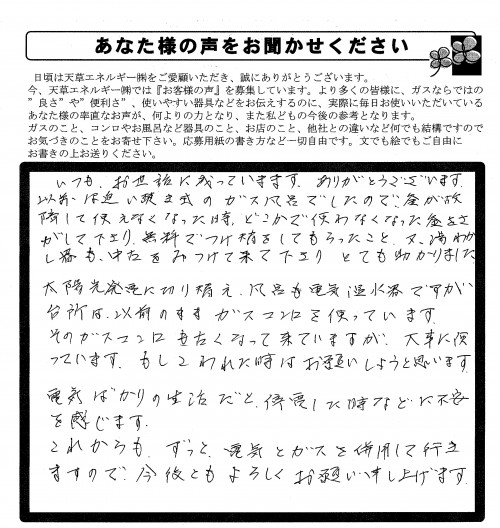 あなた様の声をお聞かせください
日頃は天草エネルギー㈱をご愛顧いただき、誠にありがとうございます。
今、天草エネルギー㈱では『お客様の声』を募集しています。より多くの皆様に、ガスならではの
”良さ”や”便利さ”、使いやすい器具などをお伝えするのに、実際に毎日お使いいただいている
あなた様の率直なお声が、何よりの力となり、また私どもの今後の参考となります。
ガスのこと、コンロやお風呂など器具のこと、お店のこと、他社との違いなど何でも結構ですので
お気づきのことをお寄せ下さい。応募用紙の書き方など一切自由です。文でも絵でもご自由に
お書きの上お送りください。
いつも、お世話に成っています。ありがとうございます。
以前は追い焚き式のガス風呂でしたので、釜が故
障して使えなくなった時、どこかで使わなくなった釜をさ
がして下さり、無料でつけ替をしてもらったこと、又、湯わか
し器も、中古をみつけて来て下さり とても助かりました
太陽光発電に切り替え、風呂も電気温水器ですが
台所は、以前のままガスコンロを使っています。
そのガスコンロも古くなって来ていますが、大事に使
っています。もしこわれた時はお願いしようと思います
電気ばかりの生活だと、停電した時などに不安
を感じます。
これからも、ずっと、電気とガスを併用して行き
ますので、今後ともよろしくお願い申し上げます。